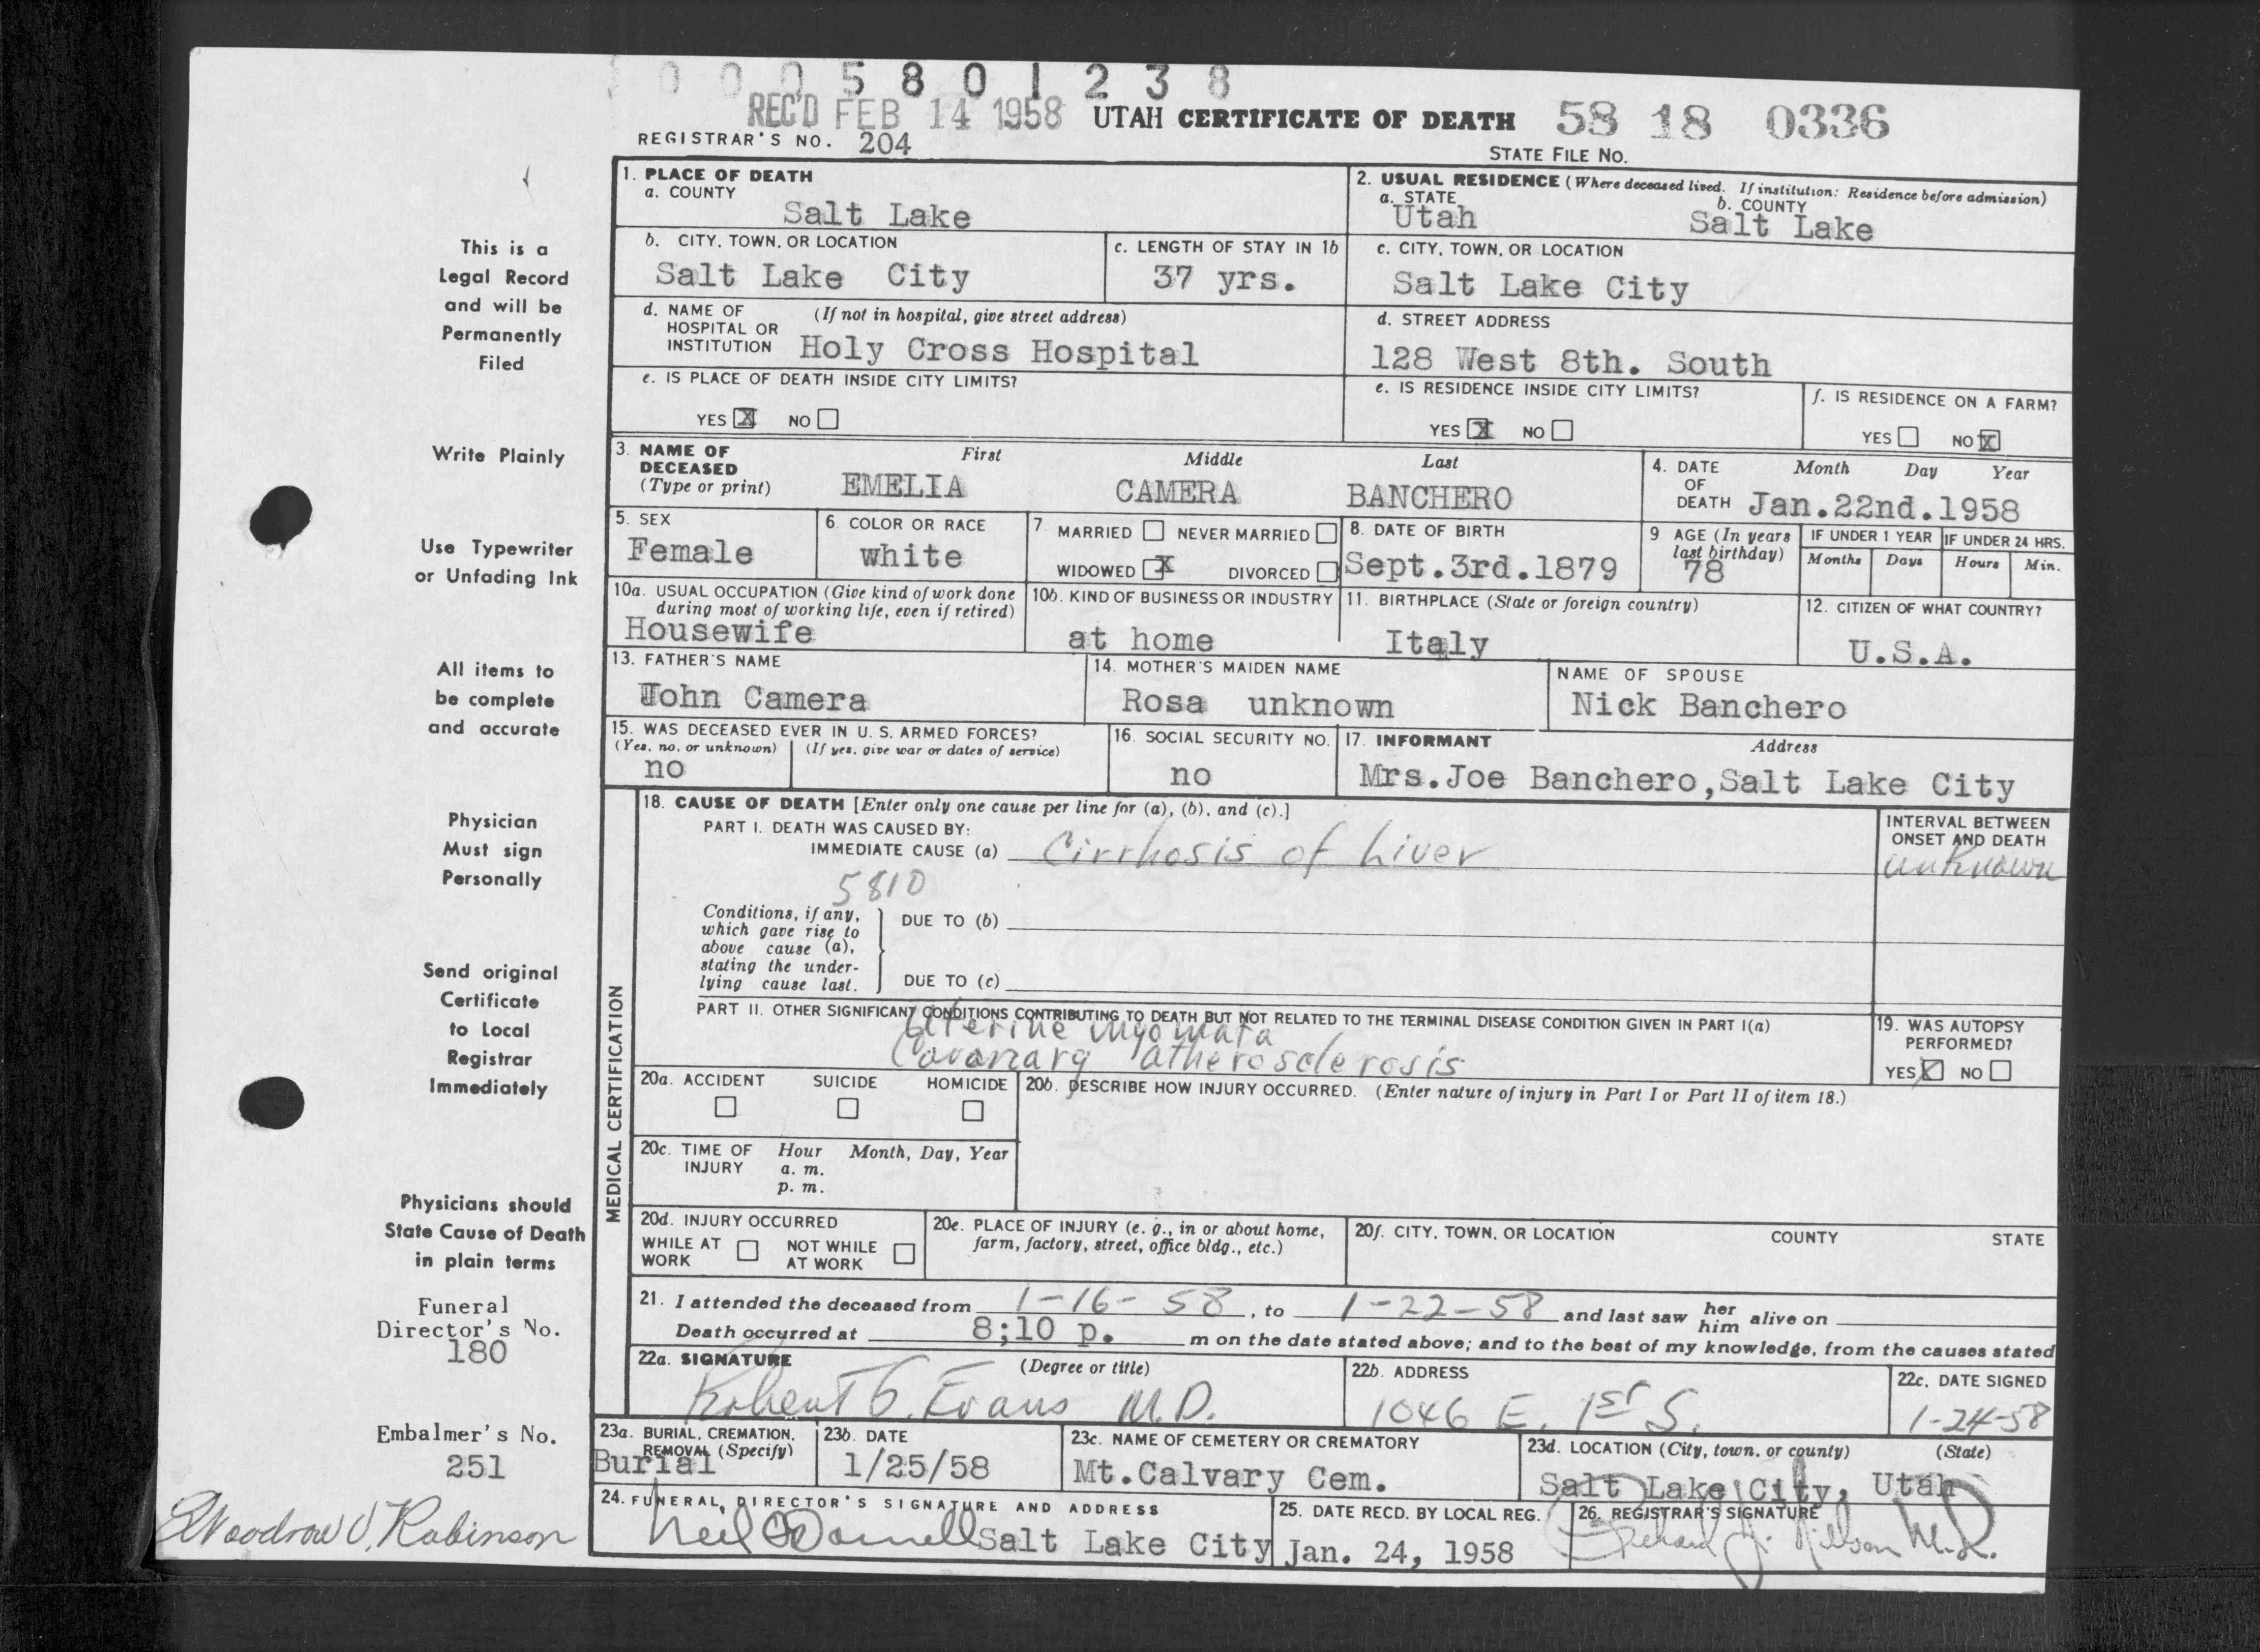 0 0 0 5 8 0 1 2 3 8
REC'D FEB 14 1958 UTAH CERTIFICATE OF DEATH 58 18 0336
REGISTRAR'S NO. 204
STATE FILE NO.
This is a
Legal Record
and will be
Permanently
Filed
Write Plainly
Use Typewriter
or Unfading Ink
All items to
be complete
and accurate
Physician
Must sign
Personally
Send original
Certificate
to Local
Registrar
Immediately
Physicians should
State Cause of Death
in plain terms
Funeral
Director's No.
180
Embalmer's No.
251
Woodrow V. Robinson
1. PLACE OF DEATH
a. COUNTY
Salt Lake
2. USUAL RESIDENCE (Where deceased lived. If institution: Residence before admission)
a. STATE b. COUNTY
Utah Salt Lake
b. CITY, TOWN, OR LOCATION
Salt Lake City
c. LENGTH OF STAY IN 1b
37 yrs.
c. CITY, TOWN, OR LOCATION
Salt Lake City
d. NAME OF (If not in hospital, give street address)
HOSPITAL OR
INSTITUTION Holy Cross Hospital
d. STREET ADDRESS
128 West 8th. South
e. IS PLACE OF DEATH INSIDE CITY LIMITS?
YES X NO
e. IS RESIDENCE INSIDE CITY LIMITS?
YES X NO
f. IS RESIDENCE ON A FARM?
YES NO X
3. NAME OF First Middle Last
DECEASED
(Type or print) EMELIA CAMERA BANCHERO
4. DATE Month Day Year
OF
DEATH Jan.22nd.1958
5. SEX
Female
6. COLOR OR RACE
white
7. MARRIED NEVER MARRIED
WIDOWED X DIVORCED
8. DATE OF BIRTH
Sept.3rd.1879
9 AGE (In years
last birthday)
78
IF UNDER 1 YEAR IF UNDER 24 HRS.
Months Days Hours Min.
10a. USUAL OCCUPATION (Give kind of work done
during most of working life, even if retired)
Housewife
10b. KIND OF BUSINESS OR INDUSTRY
at home
11. BIRTHPLACE (State or foreign country)
Italy
12. CITIZEN OF WHAT COUNTRY?
U.S.A.
13. FATHER'S NAME
John Camera
14. MOTHER'S MAIDEN NAME
Rosa unknown
NAME OF SPOUSE
Nick Banchero
15. WAS DECEASED EVER IN U. S. ARMED FORCES?
(Yes, no, or unknown) (If yes, give war or dates of service)
no
16. SOCIAL SECURITY NO.
no
17. INFORMANT Address
Mrs.Joe Banchero,Salt Lake City
MEDICAL CERTIFICATION
18. CAUSE OF DEATH [Enter only one cause per line for (a), (b), and (c).]
PART I. DEATH WAS CAUSED BY:
IMMEDIATE CAUSE (a) Cirrhosis of Liver
5810
INTERVAL BETWEEN
ONSET AND DEATH
unknown
Conditions, if any,
which gave rise to
above cause (a),
stating the under-
lying cause last.
DUE TO (b)
DUE TO (c)
PART II. OTHER SIGNIFICANT CONDITIONS CONTRIBUTING TO DEATH BUT NOT RELATED TO THE TERMINAL DISEASE CONDITION GIVEN IN PART I(a)
Uterine myomata
Coronary atherosclerosis
19. WAS AUTOPSY
PERFORMED?
YES X NO
20a. ACCIDENT SUICIDE HOMICIDE
20b. DESCRIBE HOW INJURY OCCURRED. (Enter nature of injury in Part I or Part II of item 18.)
20c. TIME OF Hour Month, Day, Year
INJURY a. m.
p. m.
20d. INJURY OCCURRED
WHILE AT NOT WHILE
WORK AT WORK
20e. PLACE OF INJURY (e. g., in or about home,
farm, factory, street, office bldg., etc.)
20f. CITY, TOWN, OR LOCATION COUNTY STATE
21. I attended the deceased from 1-16-58, to 1-22-58 and last saw her him alive on
Death occurred at 8;10 p. m on the date stated above; and to the best of my knowledge, from the causes stated
22a. SIGNATURE (Degree or title)
Robert G. Evans M.D.
22b. ADDRESS
1046 E. 1st S.
22c. DATE SIGNED
1-24-58
23a. BURIAL, CREMATION,
REMOVAL (Specify)
Burial
23b. DATE
1/25/58
23c. NAME OF CEMETERY OR CREMATORY
Mt.Calvary Cem.
23d. LOCATION (City, town, or county) (State)
Salt Lake City, Utah
24. FUNERAL DIRECTOR'S SIGNATURE AND ADDRESS
Neil O'Donnell Salt Lake City
25. DATE RECD. BY LOCAL REG.
Jan. 24, 1958
26. REGISTRAR'S SIGNATURE